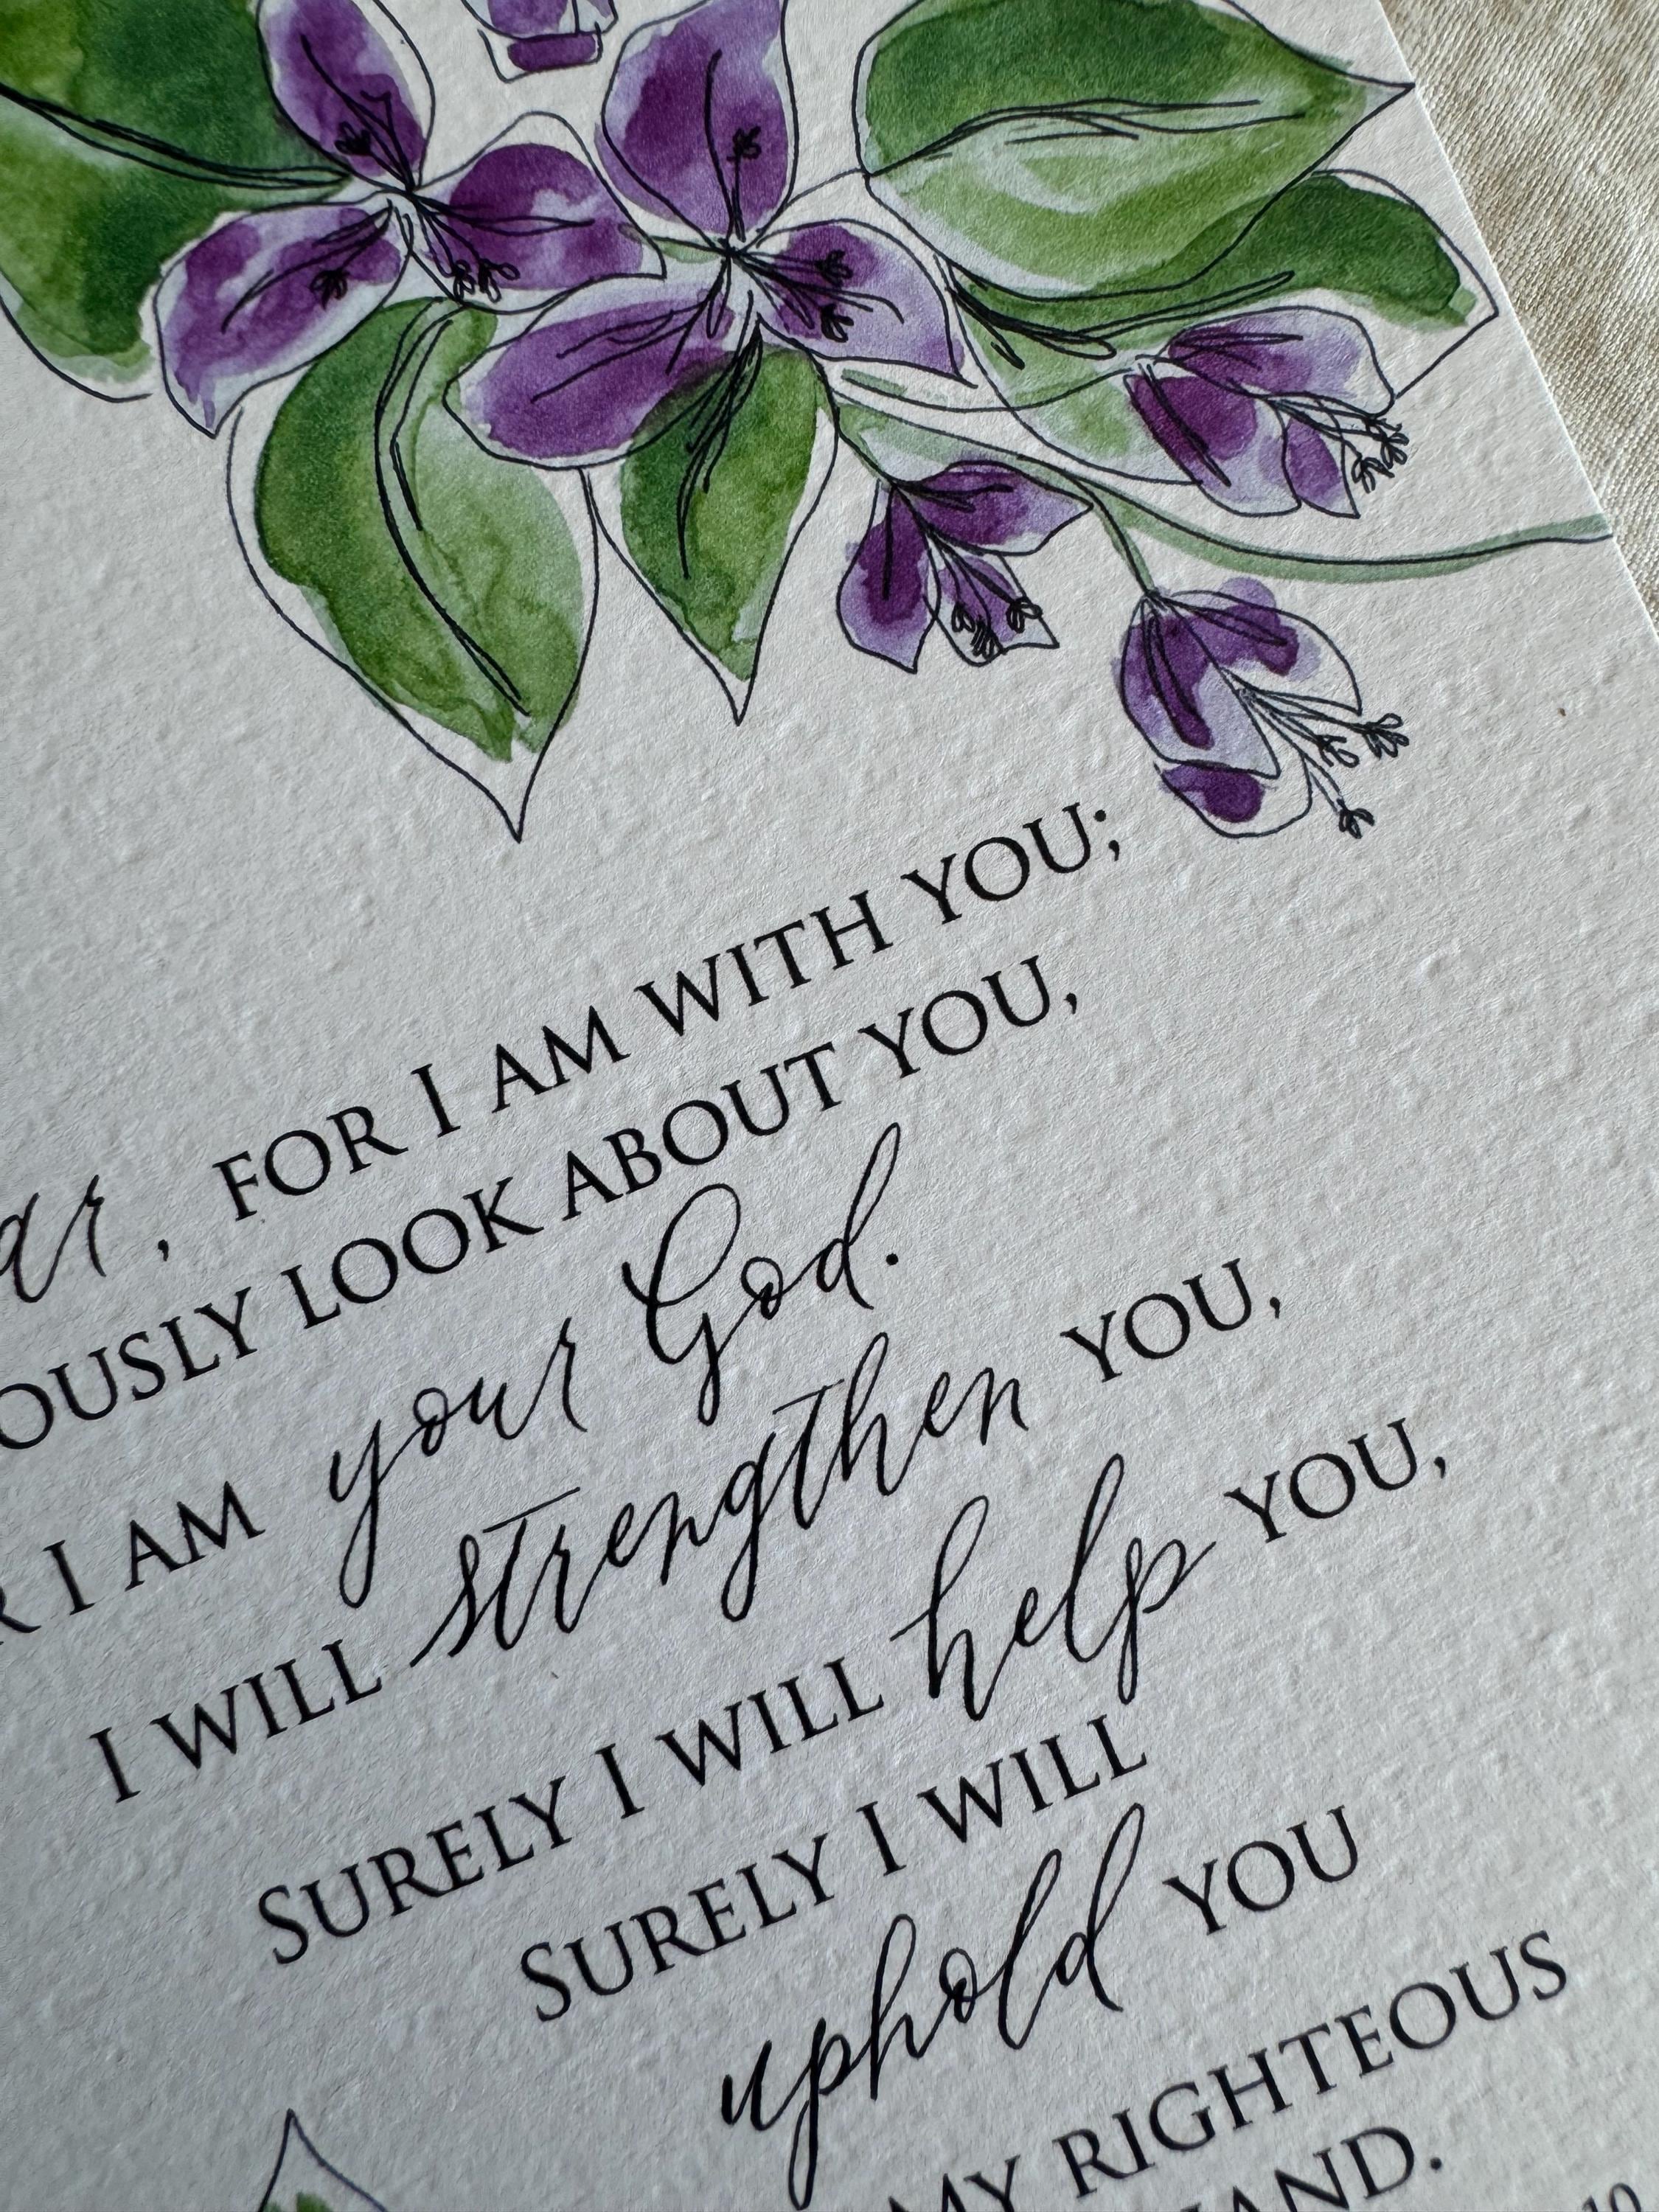 ar, FOR I AM WITH YOU;
OUSLY LOOK ABOUT YOU,
R I AM your God.
I WILL strengthen YOU,
SURELY I WILL help YOU,
SURELY I WILL
uphold YOU
MY RIGHTEOUS
AND.
10